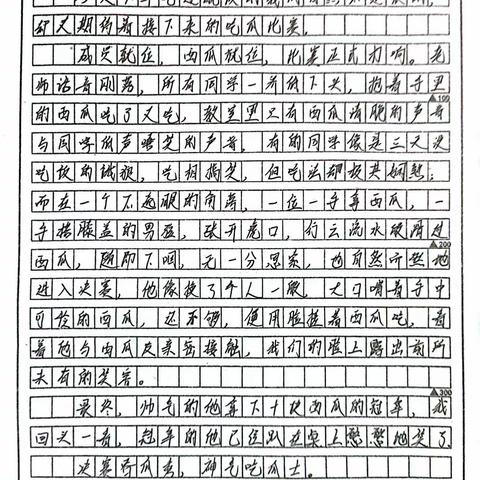 却又期约着接下来的吃瓜比赛。
成员就位,西瓜就位,比赛正式打响。老
师话音刚落,所有同学一齐低下头,抱着手里
的西瓜吃了又吃,教室里只有西瓜清脆的声音
▲100
与同学的声嘻笑的声音,有的同学像是三天没
吃饭的饿狼,吃相搞笑,但吃法却极其娴熟;
而在一个不起眼的角落,一位一手拿西瓜,一
手搭膝盖的男孩,张开虎口,行云流水般滑过
▲200
西瓜,随即下咽,无一分思索,也自然而然地
进入决赛,他像换了个人一般,大口啃着手中
可怜的西瓜,还不够,便用脸挨着西瓜吃,看
着他与西瓜皮亲密接触,我们的脸上露出前所
未有的笑容。
▲300
最终,帅气的他拿下十块西瓜的冠军,我
回头一看,冠军的他已经趴在桌上憨憨地笑了,
决赛夺瓜秀,神气吃瓜士。